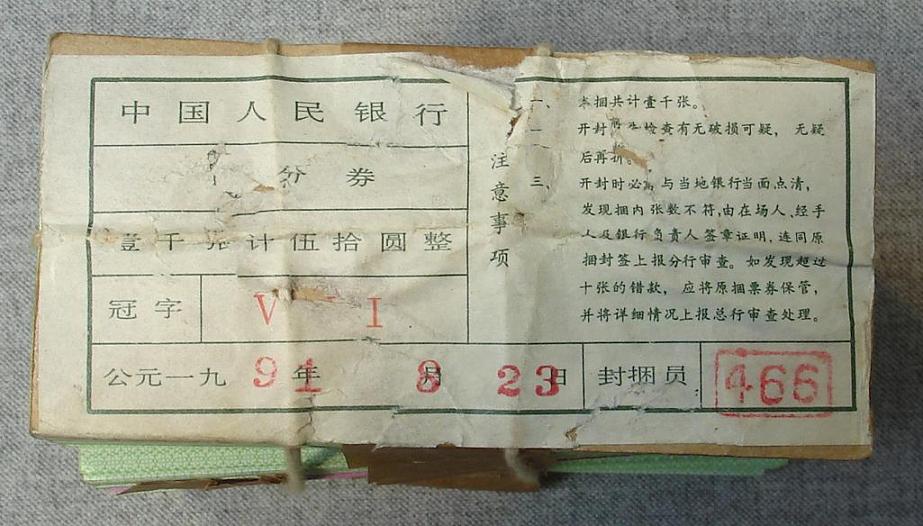 中国人民银行
分券
壹千张计伍拾圆整
冠字 V I I
公元一九91年8月23日 封捆员 466
注意事项
一、本捆共计壹千张。
开封 检查有无破损可疑，无疑
后再拆。
三、开封时必须与当地银行当面点清，
发现捆内张数不符，由在场人、经手
人及银行负责人签章证明，连同原
捆封签上报分行审查。如发现超过
十张的错款，应将原捆票券保管，
并将详细情况上报总行审查处理。